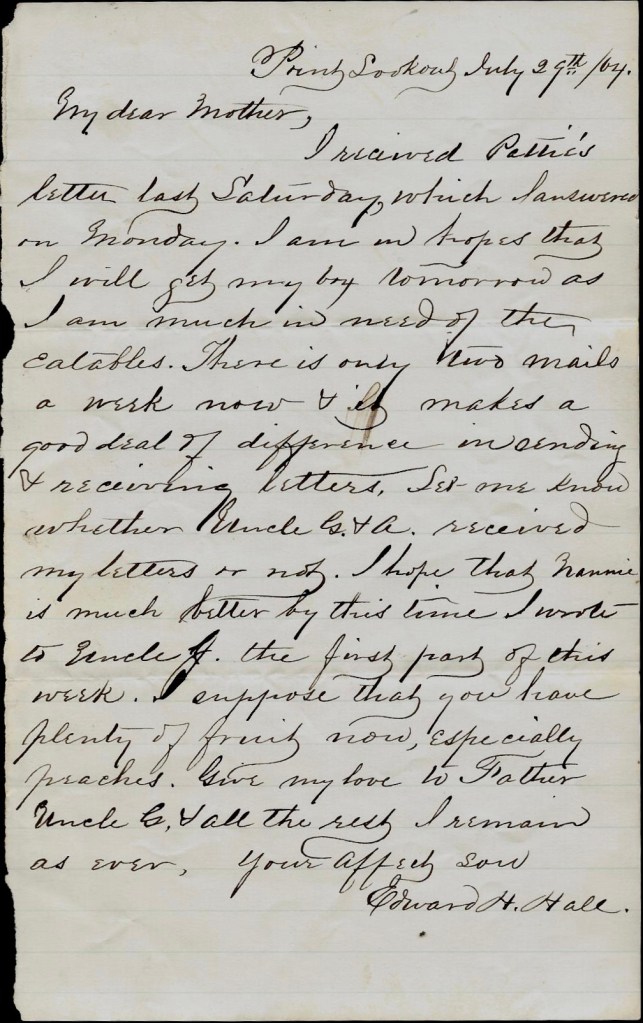 Point Lookout July 29th /64.
My dear Mother,
I recieved Pattie's
letter last Saturday, which I answered
on Monday. I am in hopes that
I will get my box tomorrow as
I am much in need of the
eatables. There is only two mails
a week now & it makes a
good deal of difference in sending
& receiving letters. Let me know
whether Uncle G. & A. received
my letters or not. I hope that Nannie
is much better by this time I wrote
to Uncle J. the first part of this
week. I suppose that you have
plenty of fruit now, especially
peaches. Give my love to Father
Uncle G, & all the rest I remain
as ever, Your Affect Son
Edward H. Hall.